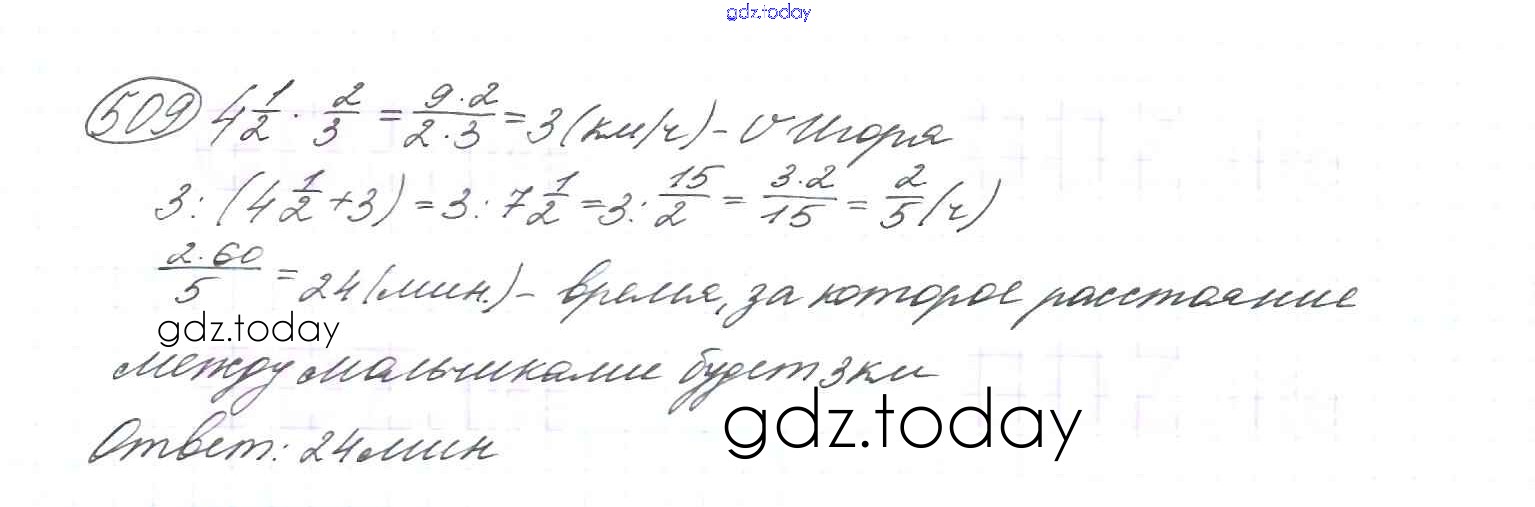 gdz.today
509 4 1/2 · 2/3 = 9·2/2·3 = 3 (км/ч) – v Игоря
3 : (4 1/2 + 3) = 3 : 7 1/2 = 3 : 15/2 = 3·2/15 = 2/5 (ч)
2·60/5 = 24 (мин.) – время, за которое расстояние
gdz.today
между мальчиками будет 3 км
gdz.today
Ответ: 24 мин